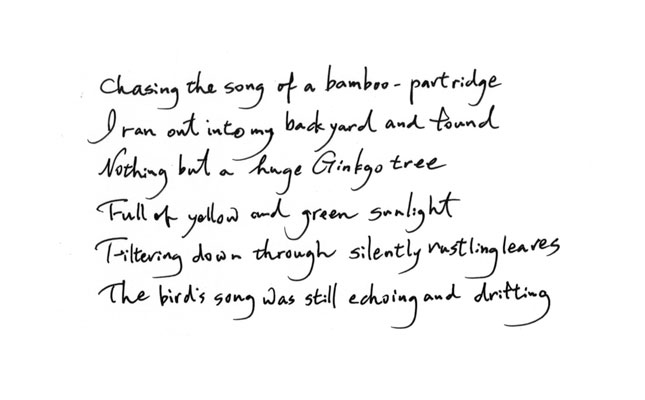 Chasing the song of a bamboo-partridge
I ran out into my backyard and found
Nothing but a huge Ginkgo tree
Full of yellow and green sunlight
Filtering down through silently rustling leaves
The bird's song was still echoing and drifting